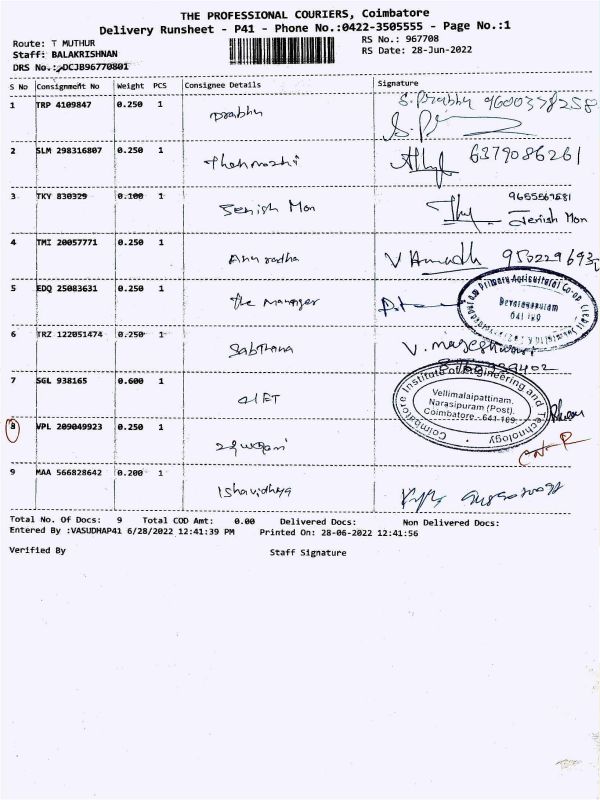 THE PROFESSIONAL COURIERS, Coimbatore
Delivery Runsheet - P41 - Phone No.:0422-3505555 - Page No.:1
Route: T MUTHUR
RS No.: 967708
Staff: BALAKRISHNAN
RS Date: 28-Jun-2022
DRS No.: DCJB96770801
S No Consignment No Weight PCS Consignee Details Signature
1 TRP 4109847 0.250 1 Prabhu S. Prabhu 9600378258
2 SLM 298316807 0.250 1 6379086261
3 TKY 830329 0.100 1 Jenish Mon 9655569581
Jenish Mon
4 TMI 20057771 0.250 1 Anuradha V Anuradh
5 EDQ 25083631 0.250 1 The Manager
Primary Agricultural Co-op
Devarayapuram
6 TRZ 122051474 0.250 1 V. Mageshwari
7 SGL 938165 0.600 1 CIET
Coimbatore Institute of Engineering and Technology
Vellimalaipattinam,
Narasipuram (Post),
Coimbatore - 641 109.
8 VPL 209049923 0.250 1
9 MAA 566828642 0.200 1 Ishavidhya
Total No. Of Docs: 9 Total COD Amt: 0.00 Delivered Docs: Non Delivered Docs:
Entered By :VASUDHAP41 6/28/2022 12:41:39 PM Printed On: 28-06-2022 12:41:56
Verified By Staff Signature